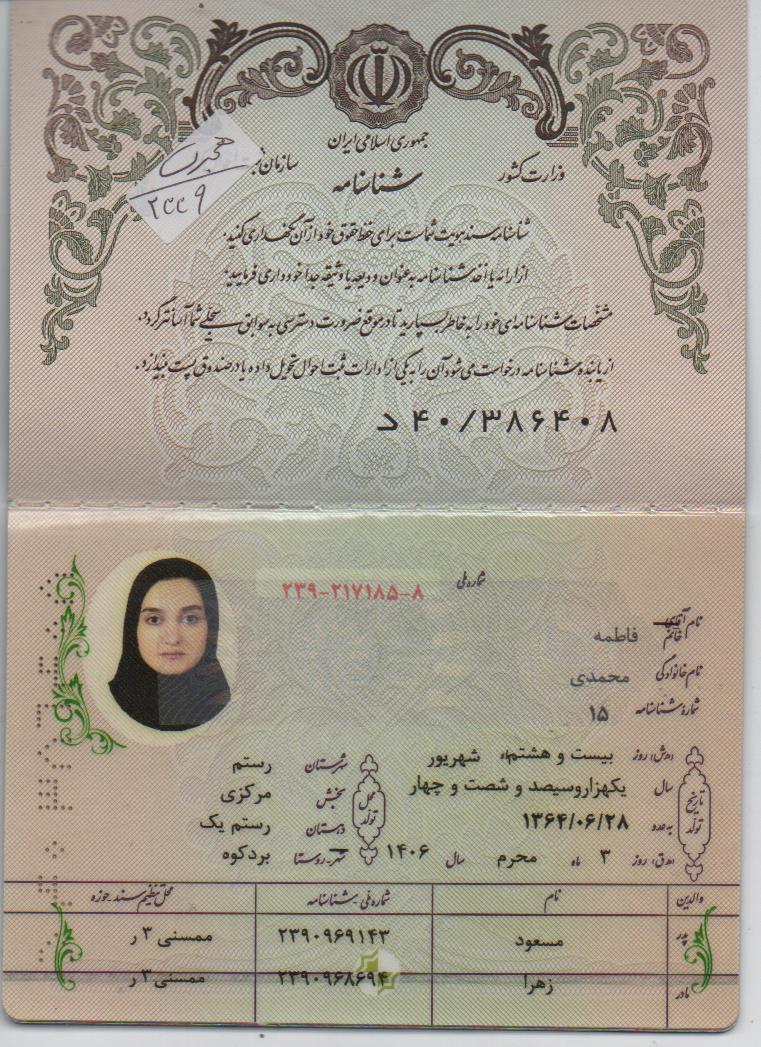 جمهوری اسلامی ایران
وزارت کشور
سازمان
شناسنامه
محبرت
۲۴۴۹
شناسنامه سند هویت شماست، برای حفظ حقوق خود از آن نگهداری کنید.
از ارائه یا اخذ شناسنامه به عنوان ودیعه یا وثیقه جداً خودداری فرمایید.
مشخصات شناسنامه‌ای خود را به خاطر بسپارید تا در موقع ضرورت دسترسی به سوابق سجلی شما آسانتر گردد.
از یابنده شناسنامه درخواست می‌شود آن را به یکی از ادارات ثبت احوال تحویل داده یا در صندوق پست بیندازد.
د ۴۰/۳۸۶۴۰۸
شماره ملی ۲۳۹-۲۱۷۱۸۵-۸
نام آقای خانم فاطمه
نام خانوادگی محمدی
شماره شناسنامه ۱۵
تاریخ تولد
(ه.ش) روز بیست و هشتم ماه شهریور
سال یکهزار و سیصد و شصت و چهار
به عدد ۱۳۶۴/۰۶/۲۸
(ه.ق) روز ۳ ماه محرم سال ۱۴۰۶
محل تولد
شهرستان رستم
بخش مرکزی
دهستان رستم یک
شهر-روستا بردکوه
والدین نام شماره ملی - شناسنامه محل تنظیم سند-حوزه
پدر مسعود ۲۳۹۰۹۶۹۱۴۳ ممسنی ۳ ر
مادر زهرا ۲۳۹۰۹۶۸۶۹۴ ممسنی ۳ ر